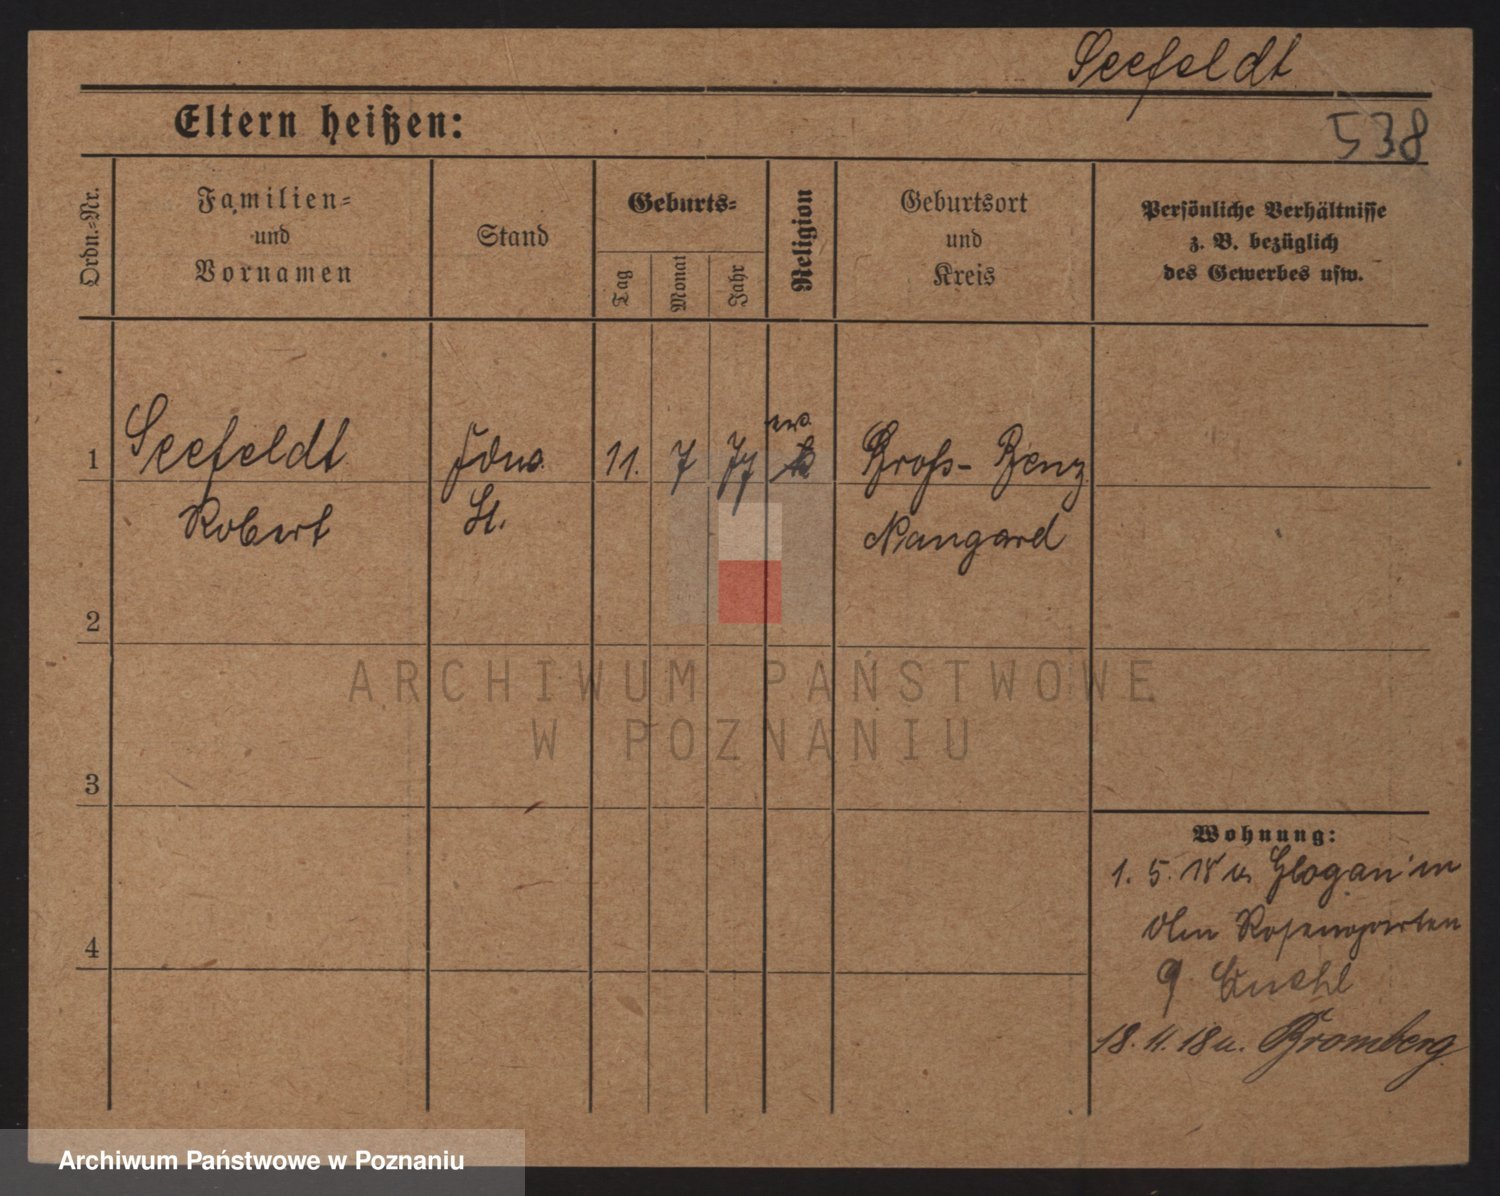 Seefeldt
538
Eltern heißen:
Ordn.-Nr.
Familien-
und
Vornamen
Stand
Geburts-
Tag
Monat
Jahr
Religion
Geburtsort
und
Kreis
Persönliche Verhältnisse
z. B. bezüglich
des Gewerbes usw.
1
Seefeldt
11. 7 77
Groß-Benz
Robert
Naugard
2
3
4
ARCHIWUM PAŃSTWOWE
W POZNANIU
Wohnung:
1. 5. 18 Glogau
Rosengarten
9
18. 11. 18 u. Bromberg
Archiwum Państwowe w Poznaniu